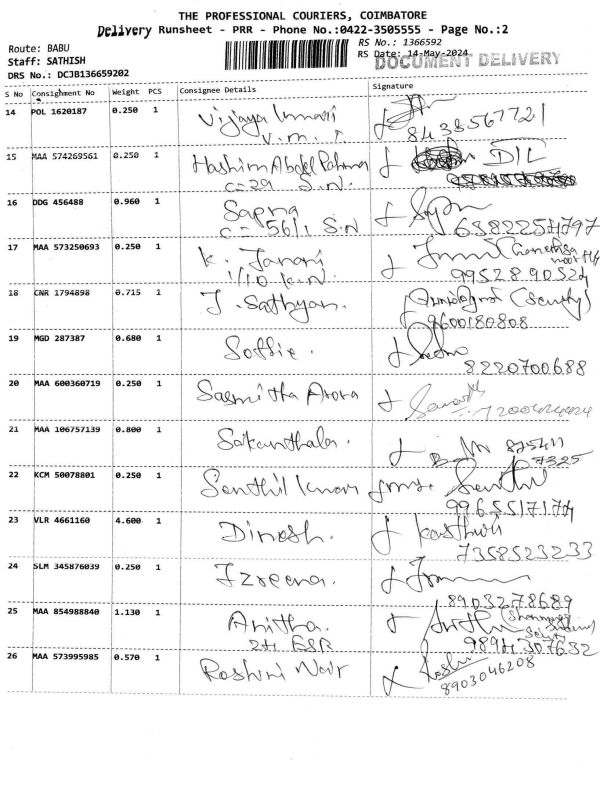 THE PROFESSIONAL COURIERS, COIMBATORE
Delivery Runsheet - PRR - Phone No.:0422-3505555 - Page No.:2
Route: BABU
RS No.: 1366592
Staff: SATHISH
RS Date: 14-May-2024
DOCUMENT DELIVERY
DRS No.: DCJB136659202
S No Consignment No Weight PCS Consignee Details Signature
14 POL 1620187 0.250 1 Vijaya Kumari
V.M.
8438567721
15 MAA 574269561 0.250 1 Hashim Abdel Rahman DIL
C-39 S.N.
16 DDG 456488 0.960 1 Sapna
C-56/1 S.N 6382254797
17 MAA 573250693 0.250 1 K. Janani
1/10 K.N. 9952890524
18 CNR 1794898 0.715 1 J. Sathyan. (Security)
9600180808
19 MGD 287387 0.680 1 Soffie.
8220700688
20 MAA 600360719 0.250 1 Sasmitha Arora
21 MAA 106757139 0.800 1 Sakunthala.
22 KCM 50078801 0.250 1 Senthil Kumar
9965517174
23 VLR 4661160 4.600 1 Dinesh. Kasthuri
7358523233
24 SLM 345876039 0.250 1 Izreena.
8903278689
25 MAA 854988840 1.130 1 Anitha.
24 ESR 9894307632
26 MAA 573995985 0.570 1 Roshni Nair Roshni
8903046208